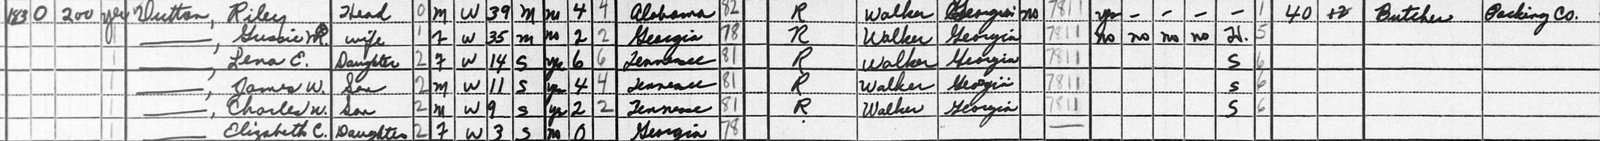 183 O 200 yes Dutton, Riley Head 0 M W 39 M no 4 4 Alabama 82 R Walker Georgia no 7811 yes - - - - 1 40 Butcher Packing Co.
———, Gussie M. wife 1 F W 35 M no 2 2 Georgia 78 R Walker Georgia 7811 no no no no H. 5
———, Lena E. Daughter 2 F W 14 S yes 6 6 Tennessee 81 R Walker Georgia 7811 S 6
———, James W. Son 2 M W 11 S yes 4 4 Tennessee 81 R Walker Georgia 7811 S 6
———, Charles W. Son 2 M W 9 S yes 2 2 Tennessee 81 R Walker Georgia 7811 S 6
——— Elizabeth C. Daughter 2 F W 3 S no 0 Georgia 78